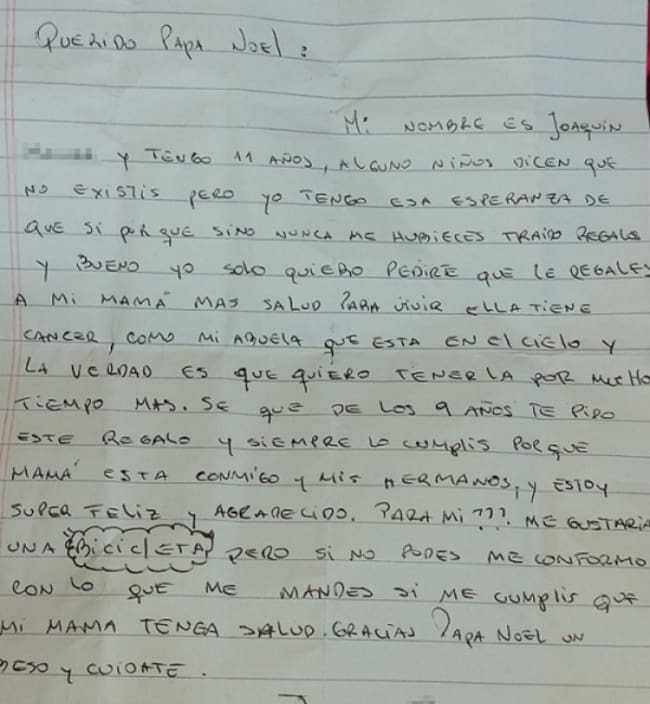 QUERIDO PAPA NOEL:
Mi NOMBRE ES JOAQUIN
Y TENGO 11 AÑOS, ALGUNO NIÑOS DICEN QUE
NO EXISTIS PERO YO TENGO ESA ESPERANZA DE
QUE SI PORQUE SINO NUNCA ME HUBIECES TRAIDO REGALO
Y BUENO YO SOLO QUIERO PEDIRTE QUE LE REGALES
A MI MAMÁ MAS SALUD PARA VIVIR ELLA TIENE
CANCER, COMO MI ABUELA QUE ESTA EN EL CIELO Y
LA VERDAD ES QUE QUIERO TENERLA POR MUCHO
TIEMPO MAS. SE QUE DE LOS 9 AÑOS TE PIDO
ESTE REGALO Y SIEMPRE LO CUMPLIS PORQUE
MAMÁ ESTA CONMIGO Y MIS HERMANOS, Y ESTOY
SUPER FELIZ Y AGRADECIDO. PARA MI ???. ME GUSTARIA
UNA BICICLETA PERO SI NO PODES ME CONFORMO
CON LO QUE ME MANDES SI ME CUMPLIS QUE
MI MAMA TENGA SALUD. GRACIAS PAPA NOEL UN
BESO Y CUIDATE.